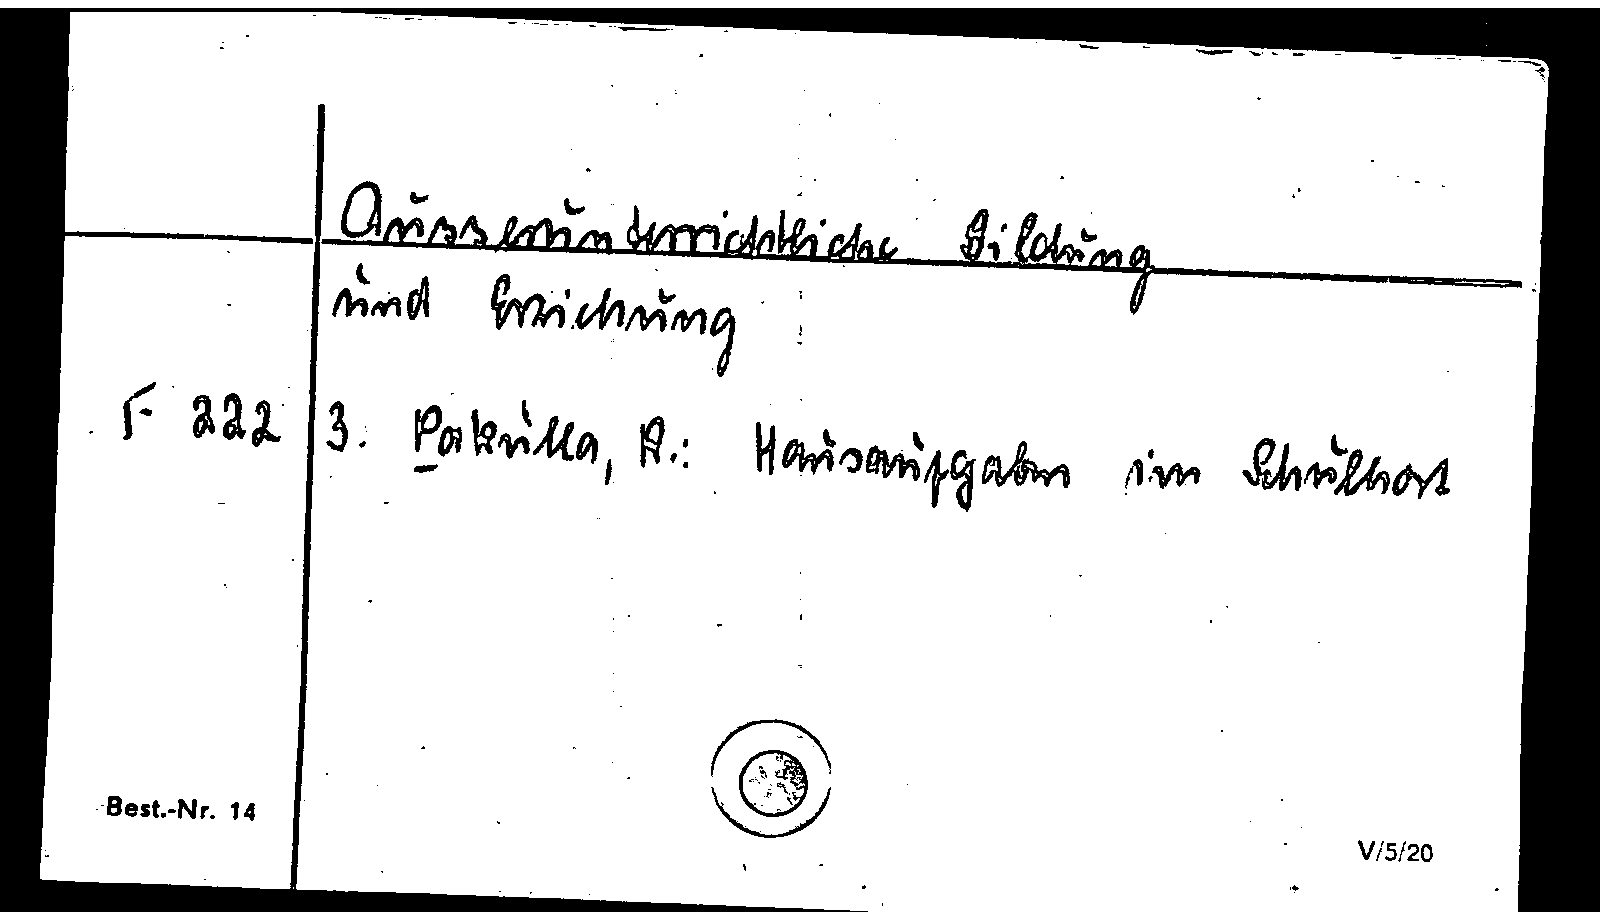 Ausserunterrichtliche Bildung
und Erziehung
F 222 3. Pakulla, R.: Hausaufgaben im Schulhort
Best.-Nr. 14
V/5/20